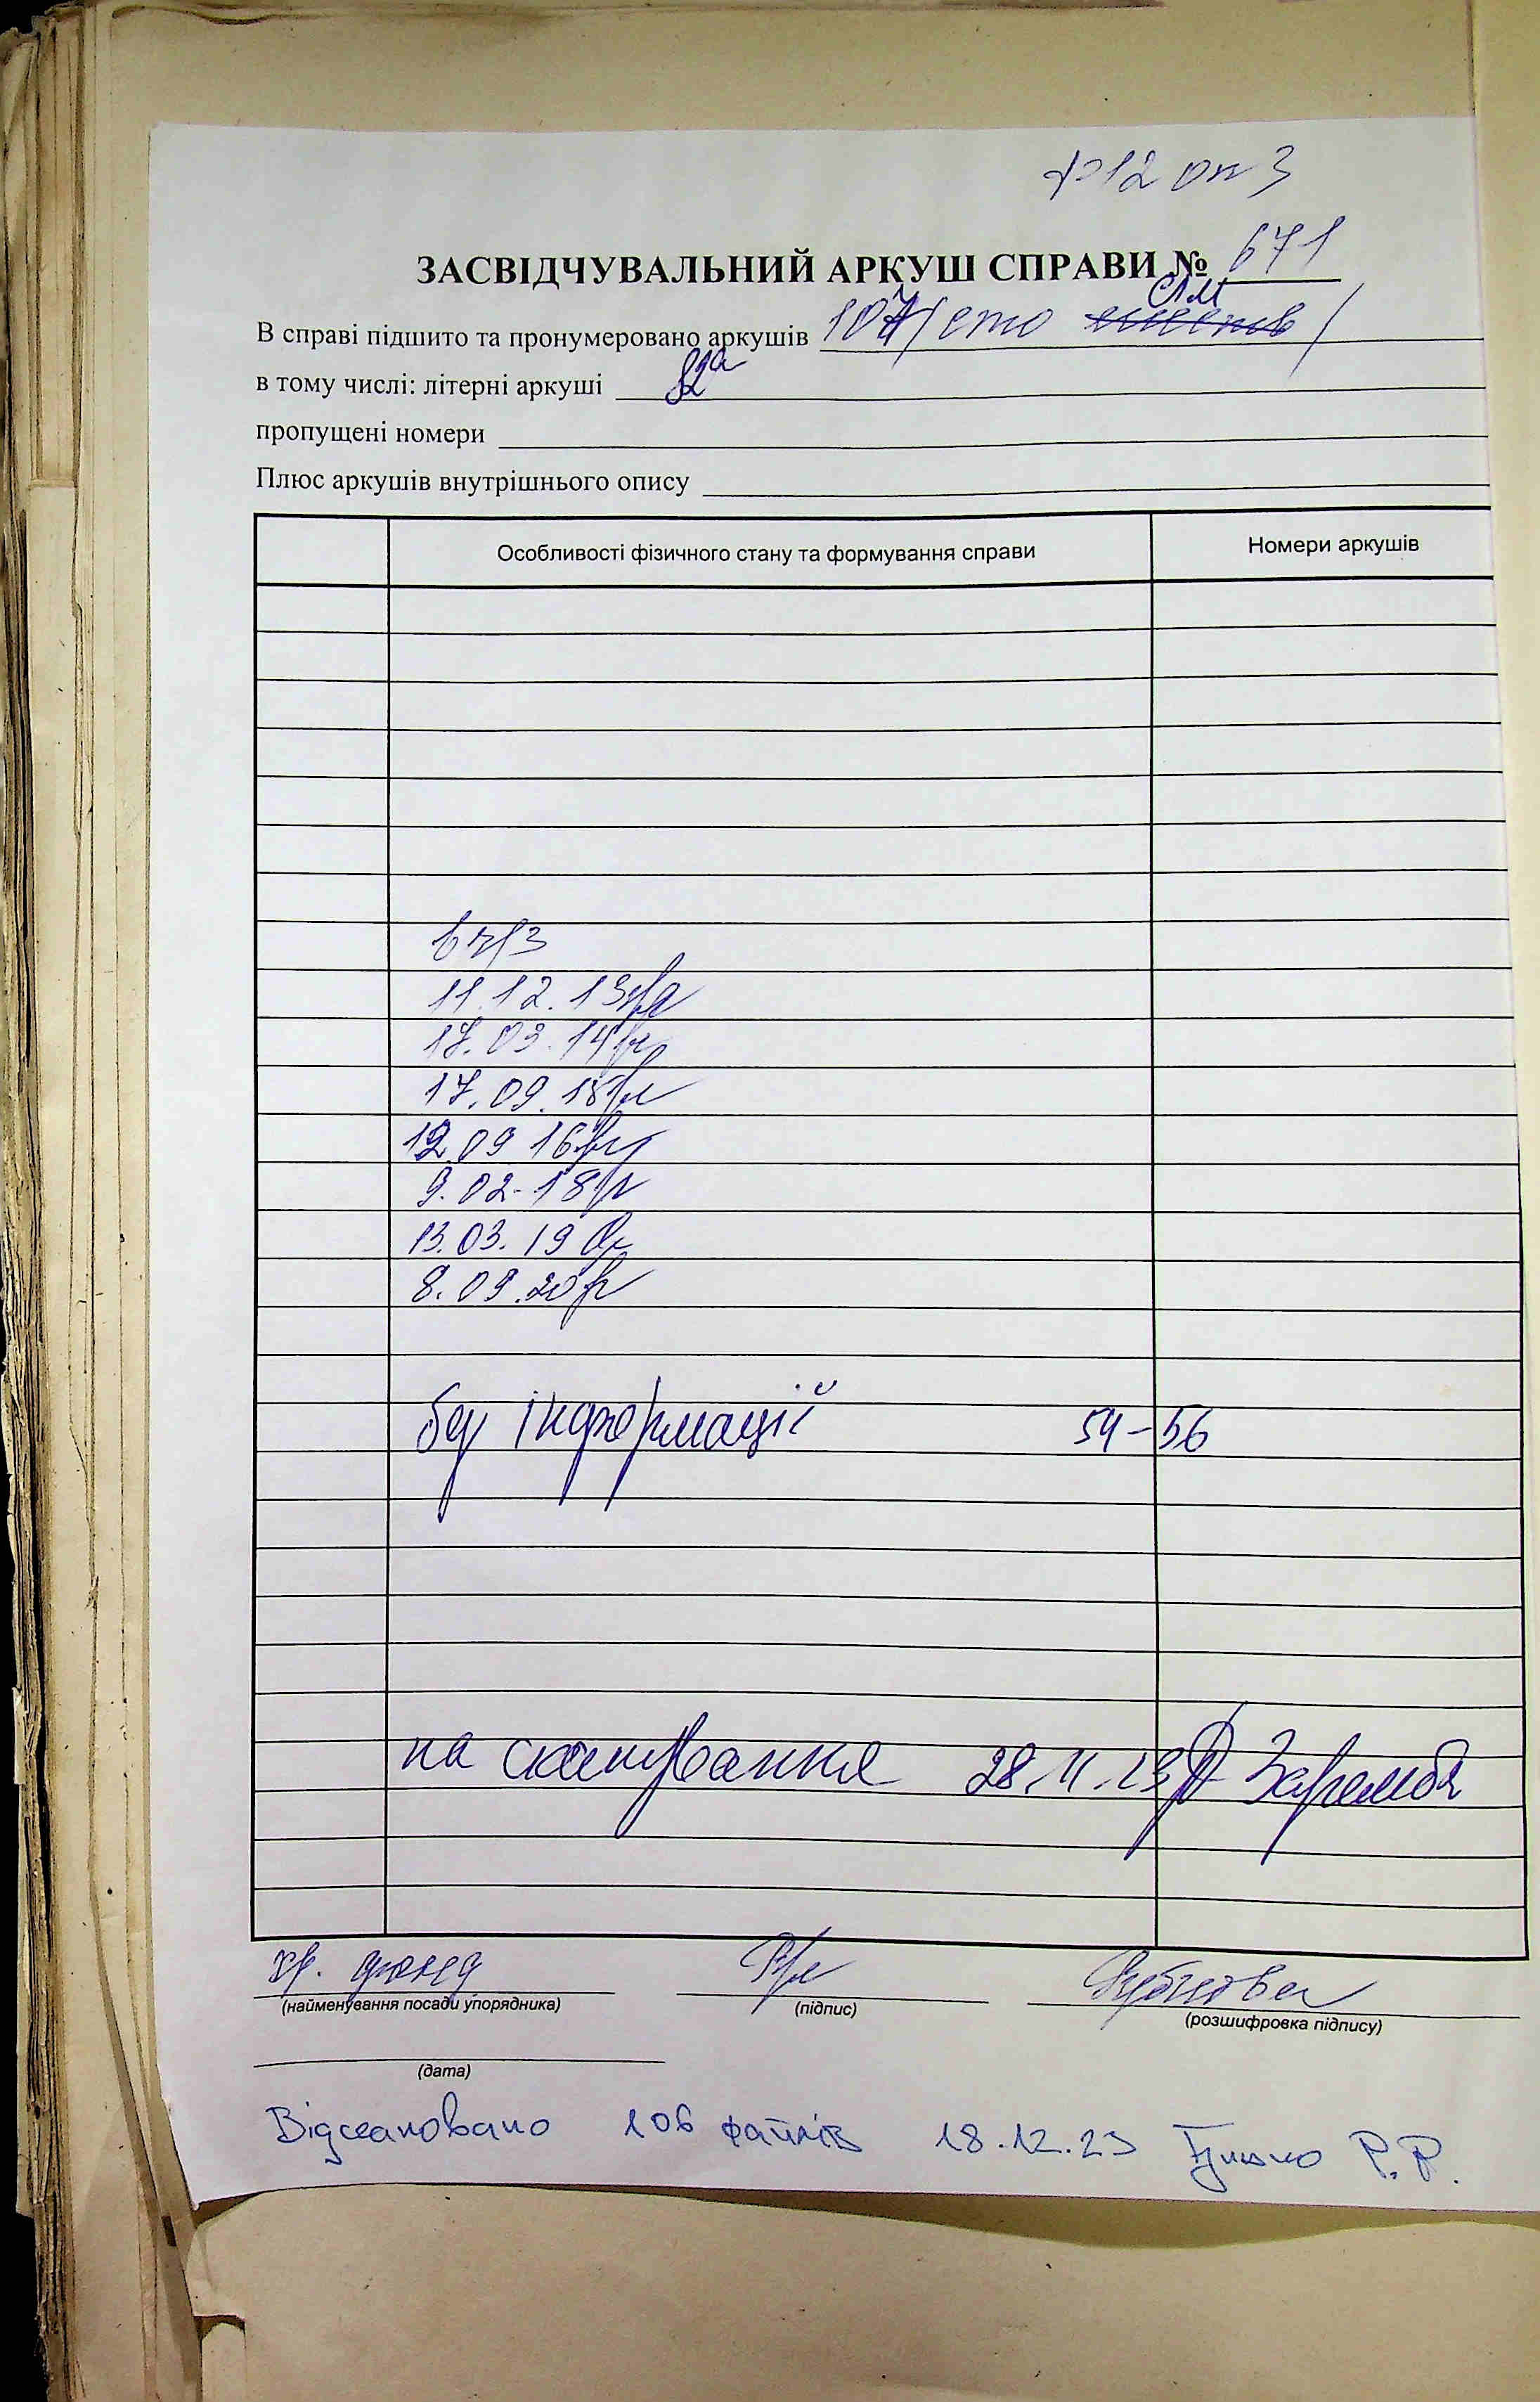 ф 12 оп 3
ЗАСВІДЧУВАЛЬНИЙ АРКУШ СПРАВИ № 671
В справі підшито та пронумеровано аркушів 107 /сто сім /
в тому числі: літерні аркуші 82а
пропущені номери
Плюс аркушів внутрішнього опису
Особливості фізичного стану та формування справи Номери аркушів
в ч/з
11.12.13
17.03.14
17.09.15
12.09 16
9.02.18
13.03.19
8.09.20
без інформації 54-56
на сканування 28.11.23 Заремба
хр. фонд
(найменування посади упорядника) (підпис) (розшифровка підпису)
(дата)
Відскановано 106 файлів 18.12.23 Р.Р.